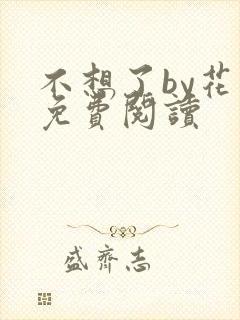 不想了by花
免費閱讀
盛齊志